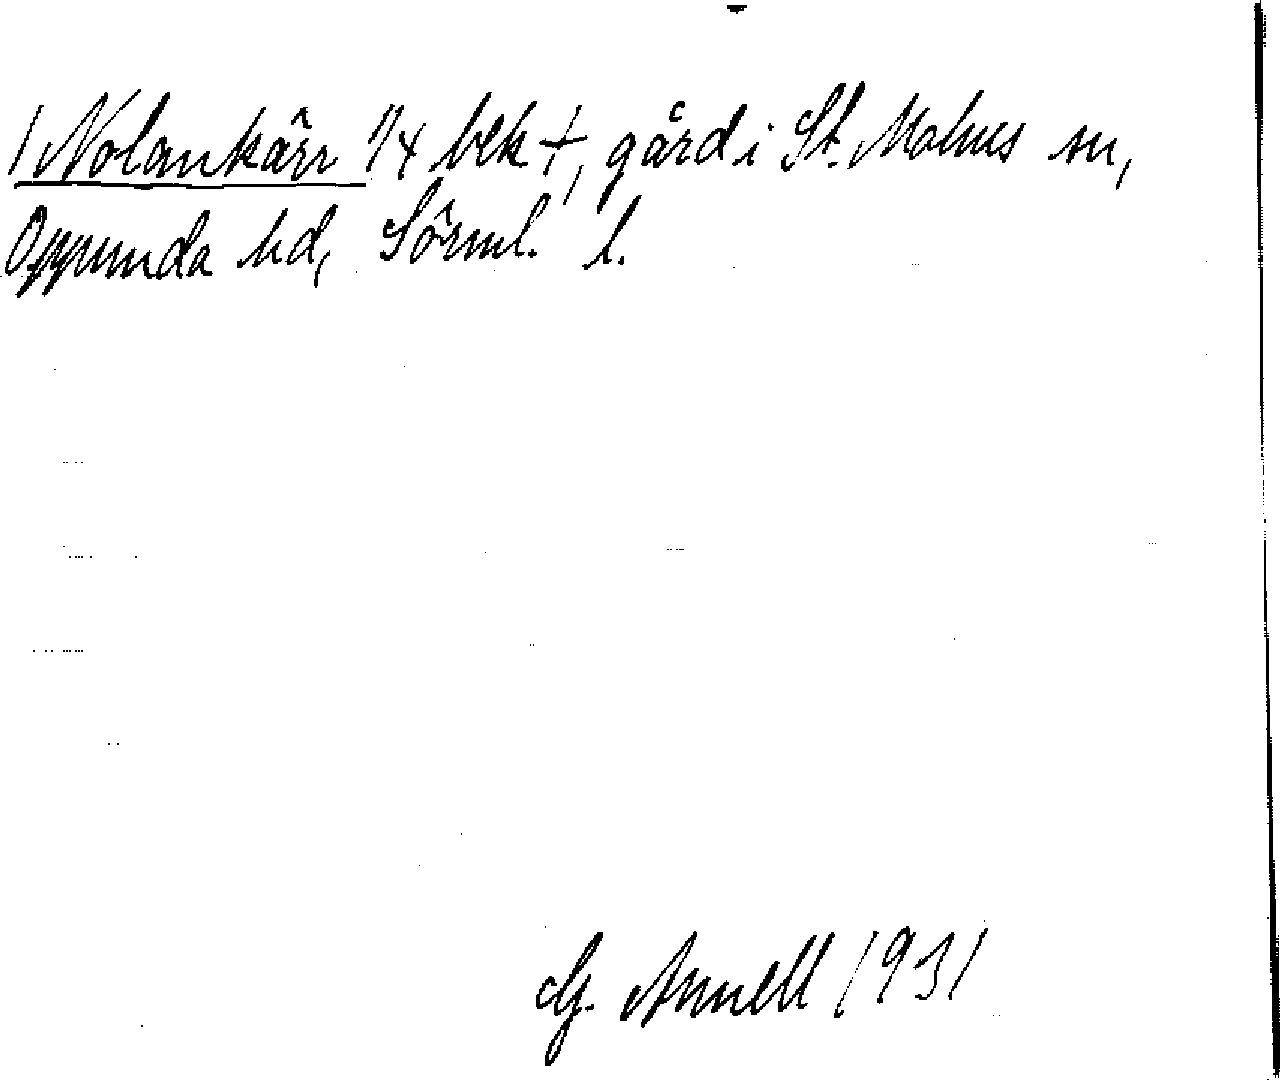 1 Nolankärr 1/4 bek †, gård i St. Malms sn,
Oppunda hd, Sörml. l.
G. Annell 1931